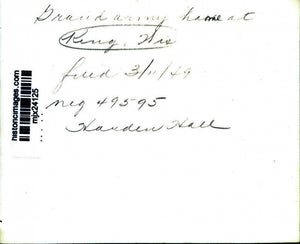 Grand army home at
King, Wis
filed 3/11/49
neg 49595
Harden Hall
historicimages.com
mjx24125